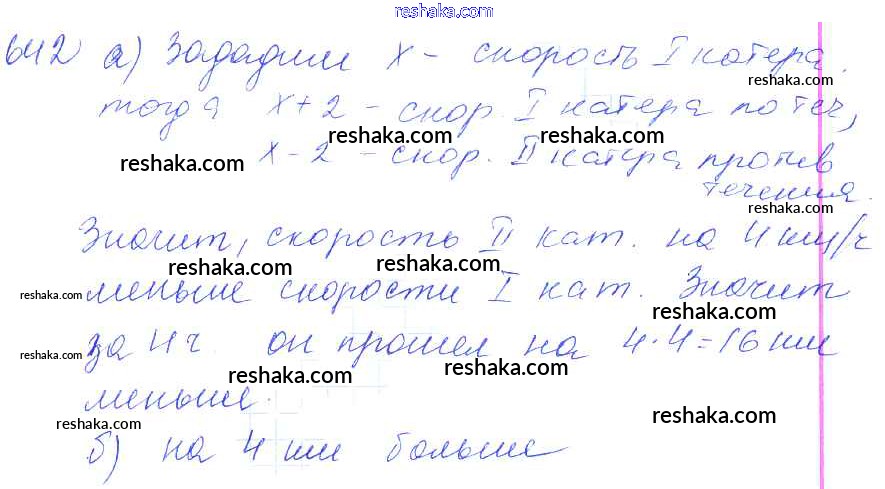 reshaka.com
642 а) Зададим х - скорость I катера.
reshaka.com
тогда х+2 - скор. I катера по теч,
reshaka.com reshaka.com
х-2 - скор. II катера против
reshaka.com
течения.
reshaka.com
Значит, скорость II кат. на 4 км/ч
reshaka.com reshaka.com
reshaka.com меньше скорости I кат. Значит
reshaka.com
reshaka.com за 4ч. он прошел на 4·4=16 км
reshaka.com reshaka.com
меньше.
reshaka.com reshaka.com
б) на 4 км больше